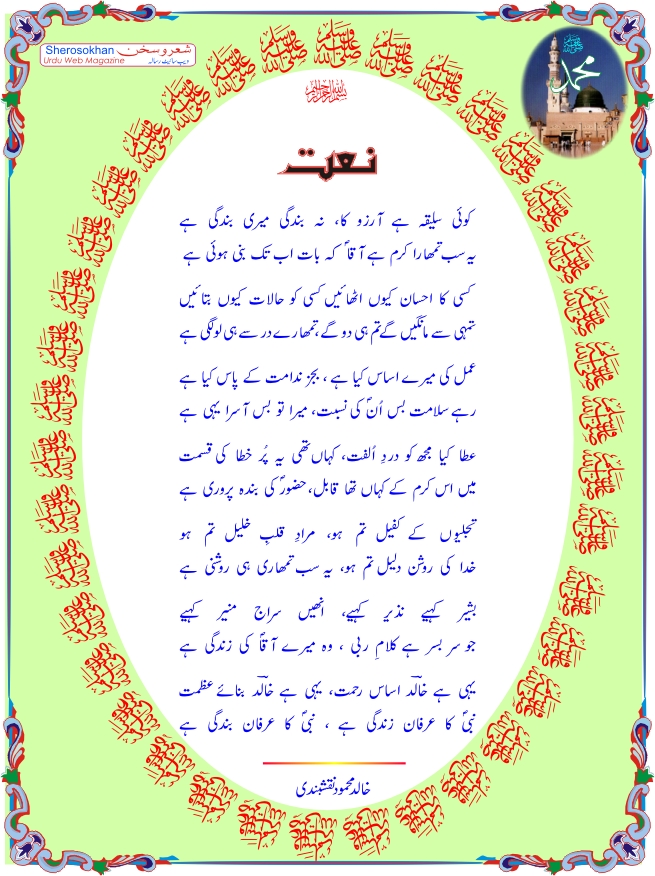 Sherosokhan شعر و سخن
Urdu Web Magazine ویب سائیٹ رسالہ
محمد
ﷺ
بسم اللہ الرحمن الرحیم
نعت
کوئی سلیقہ ہے آرزو کا، نہ بندگی میری بندگی ہے
یہ سب تمھارا کرم ہے آقاؐ کہ بات اب تک بنی ہوئی ہے
کسی کا احسان کیوں اٹھائیں کسی کو حالات کیوں بتائیں
تمہی سے مانگیں گے تم ہی دو گے، تمھارے در سے ہی لو لگی ہے
عمل کی میرے اساس کیا ہے، بجز ندامت کے پاس کیا ہے
رہے سلامت بس اُنؐ کی نسبت، میرا تو بس آسرا یہی ہے
عطا کیا مجھ کو دردِ اُلفت، کہاں تھی یہ پُر خطا کی قسمت
میں اس کرم کے کہاں تھا قابل، حضورؐ کی بندہ پروری ہے
تجلیوں کے کفیل تم ہو، مرادِ قلبِ خلیل تم ہو
خدا کی روشن دلیل تم ہو، یہ سب تمھاری ہی روشنی ہے
بشیر کہیے نذیر کہیے، انھیں سراج منیر کہیے
جو سر بسر ہے کلامِ ربی ، وہ میرے آقاؐ کی زندگی ہے
یہی ہے خالدؔ اساس رحمت، یہی ہے خالدؔ بنائے عظمت
نبیؐ کا عرفان زندگی ہے ، نبیؐ کا عرفان بندگی ہے
خالد محمود نقشبندی